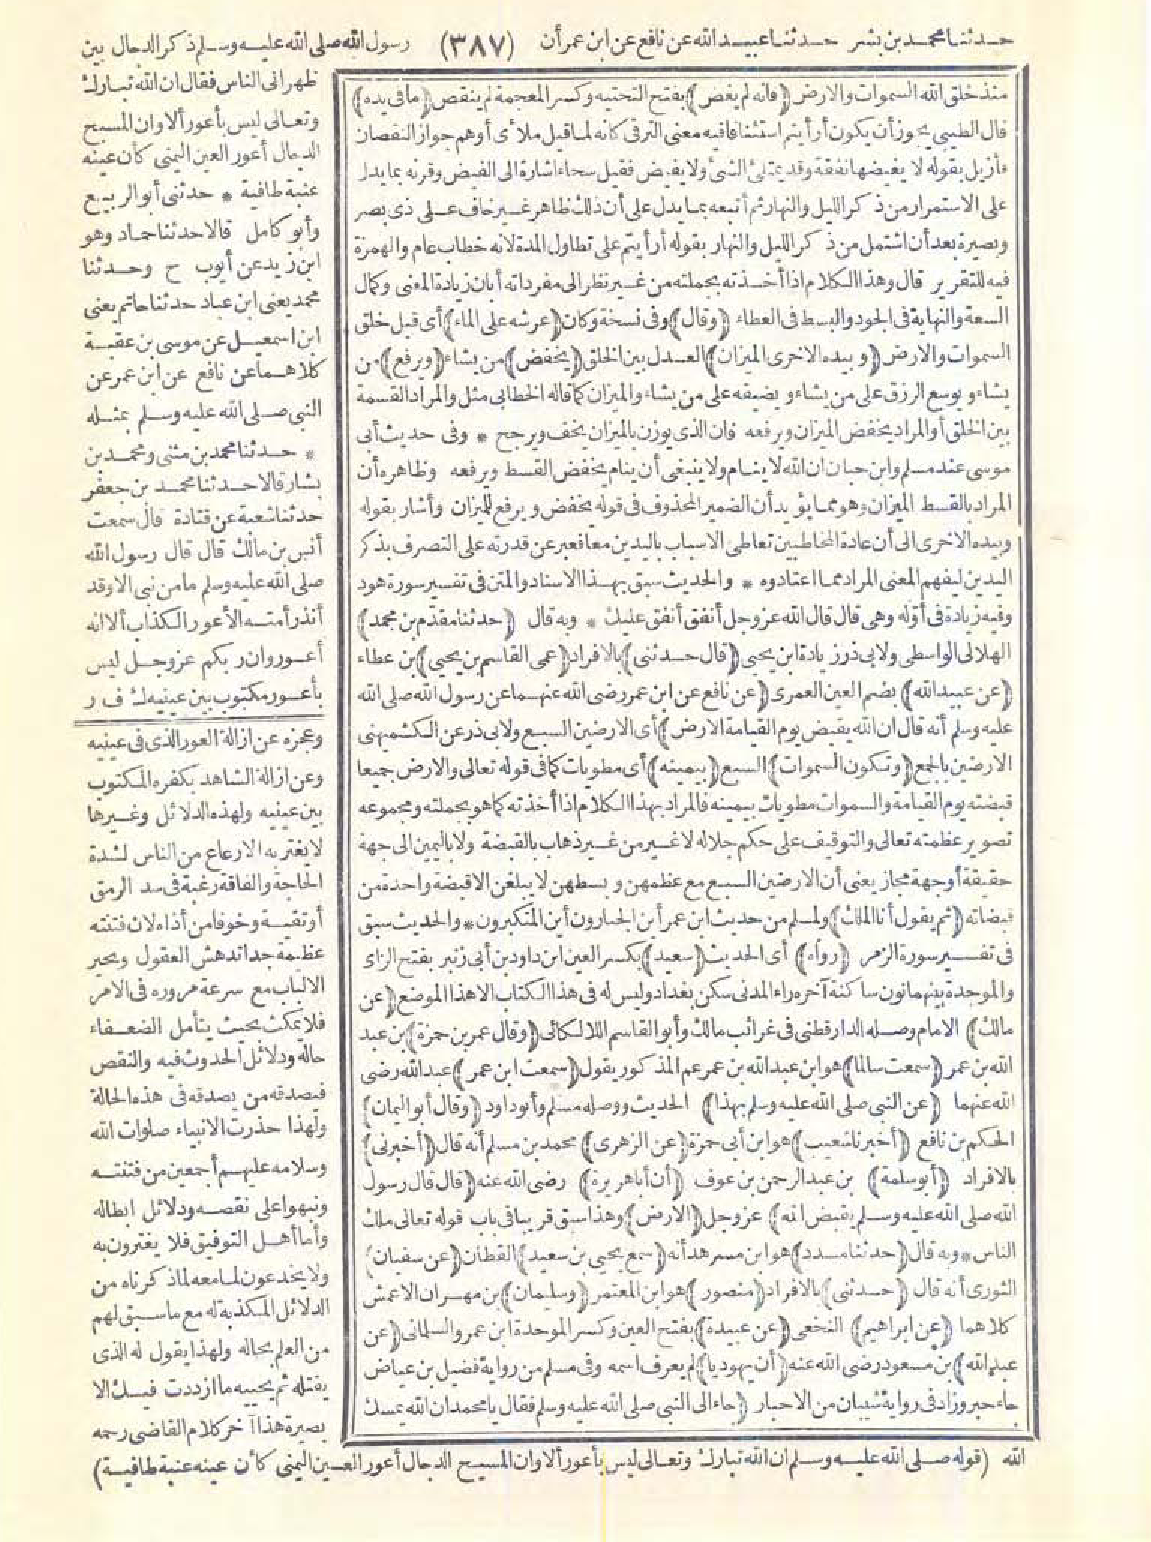 حدثنا محمد بن بشر حدثنا عبيد الله عن نافع عن ابن عمر أن (٣٨٧) رسول الله صلى الله عليه وسلم ذكر الدجال بين
منذ خلق الله السموات والارض (فانه لم يغض) بفتح التحتيه وكسر المعجمة لم ينقص (ما فى يده)
قال الطيبي يجوز أن يكون أرأيتم استئنافا فيه معنى الترقى كانه لما قيل ملأى أوهم جواز النقصان
فأزيل بقوله لا يغيضها نفقة وقد يمتلئ الشئ ولا يفيض فقيل سحاء اشارة الى الفيض وقرنه بما يدل
على الاستمرار من ذكر الليل والنهار ثم أتبعه بما يدل على أن ذلك ظاهر غير خاف على ذى بصر
وبصيرة بعد أن اشتمل من ذكر الليل والنهار بقوله أرأيتم على تطاول المدة لانه خطاب عام والهمزة
فيه للتقرير قال وهذا الكلام اذا أخذته بجملته من غير نظر الى مفرداته أبان زيادة المعنى وكمال
السعة والنهاية فى الجود والبسط فى العطاء (وقال) وفى نسخة وكان (عرشه على الماء) أى قبل خلق
السموات والارض (وبيده الاخرى الميزان) العدل بين الخلق (يخفض) من يشاء (ويرفع) من
يشاء ويوسع الرزق على من يشاء ويضيقه على من يشاء والميزان كما قاله الخطابى مثل والمراد القسمة
بين الخلق أو المراد يخفض الميزان ويرفعه فان الذى يوزن بالميزان يخف ويرجح * وفى حديث أبى
موسى عند مسلم وابن حبان ان الله لا ينام ولا ينبغى أن ينام يخفض القسط ويرفعه وظاهره أن
المراد بالقسط الميزان وهو مما يؤيد أن الضمير المحذوف فى قوله يخفض ويرفع للميزان وأشار بقوله
وبيده الاخرى الى أن عادة المخاطبين تعاطى الاسباب باليدين معا فعبر عن قدرته على التصرف بذكر
اليدين ليفهم المعنى المراد مما اعتادوه * والحديث سبق بهذا الاسناد والمتن فى تفسير سورة هود
وفيه زيادة فى أوله وهى قال قال الله عز وجل أنفق أنفق عليك * وبه قال (حدثنا مقدّم بن محمد)
الهلالى الواسطى ولابى ذر زيادة ابن يحيى (قال حدثنى) بالافراد (عمى القاسم بن يحيى) بن عطاء
(عن عبيد الله) بضم العين العمرى (عن نافع عن ابن عمر رضى الله عنهما عن رسول الله صلى الله
عليه وسلم أنه قال ان الله يقبض يوم القيامة الارض) أى الارضين السبع ولابى ذر عن الكشميهنى
الارضين بالجمع (وتكون السموات) السبع (بيمينه) أى مطويات كما فى قوله تعالى والارض جميعا
قبضته يوم القيامة والسموات مطويات بيمينه فالمراد بهذا الكلام اذا أخذته كما هو بجملته ومجموعه
تصوير عظمته تعالى والتوقيف على حكم جلاله لا غير من غير ذهاب بالقبضة ولا باليمين الى جهة
حقيقة أو جهة مجاز يعنى أن الارضين السبع مع عظمهن وبسطهن لا يبلغن الا قبضة واحدة من
قبضاته (ثم يقول أنا الملك) ولمسلم من حديث ابن عمر أين الجبارون أين المتكبرون * والحديث سبق
فى تفسير سورة الزمر (رواه) أى الحديث (سعيد) بكسر العين ابن داود بن أبى زنبر بفتح الزاى
والموحدة بينهما نون ساكنة آخره راء المدنى سكن بغداد وليس له فى هذا الكتاب الا هذا الموضع (عن
مالك) الامام وصله الدارقطنى فى غرائب مالك وأبو القاسم اللالكائى (وقال عمر بن حمزة) بن عبد
الله بن عمر (سمعت سالما) هو ابن عبد الله بن عمر عم المذكور يقول (سمعت ابن عمر) عبد الله رضى
الله عنهما (عن النبى صلى الله عليه وسلم بهذا) الحديث ووصله مسلم وأبو داود (وقال أبو اليمان)
الحكم بن نافع (أخبرنا شعيب) هو ابن أبى حمزة (عن الزهرى) محمد بن مسلم أنه قال (أخبرنى)
بالافراد (أبو سلمة) بن عبد الرحمن بن عوف (أن أبا هريرة) رضى الله عنه (قال قال رسول
الله صلى الله عليه وسلم يقبض الله) عز وجل (الارض) وهذا سبق قريبا فى باب قوله تعالى ملك
الناس * وبه قال (حدثنا مسدد) هو ابن مسرهد أنه (سمع يحيى بن سعيد) القطان (عن سفيان)
الثورى أنه قال (حدثنى) بالافراد (منصور) هو ابن المعتمر (وسليمان) بن مهران الاعمش
كلاهما (عن ابراهيم) النخعى (عن عبيدة) بفتح العين وكسر الموحدة ابن عمرو السلمانى (عن
عبد الله) بن مسعود رضى الله عنه (أن يهوديا) لم يعرف اسمه وفى مسلم من رواية فضيل بن عياض
جاء حبر وزاد فى رواية شيبان من الاحبار (جاء الى النبى صلى الله عليه وسلم فقال يا محمد ان الله يمسك
ظهرانى الناس فقال ان الله تبارك
وتعالى ليس بأعور ألا وان المسيح
الدجال أعور العين اليمنى كأن عينه
عنبة طافية * حدثنى أبو الربيع
وأبو كامل قالا حدثنا حماد وهو
ابن زيد عن أيوب ح وحدثنا
محمد يعنى ابن عباد حدثنا حاتم يعنى
ابن اسمعيل عن موسى بن عقبة
كلاهما عن نافع عن ابن عمر عن
النبى صلى الله عليه وسلم بمثله
* حدثنا محمد بن مثنى ومحمد بن
بشار قالا حدثنا محمد بن جعفر
حدثنا شعبة عن قتادة قال سمعت
أنس بن مالك قال قال رسول الله
صلى الله عليه وسلم ما من نبى الا وقد
أنذر أمته الأعور الكذاب ألا انه
أعور وان ربكم عز وجل ليس
بأعور مكتوب بين عينيه ك ف ر
وعجزه عن ازالة العور الذى فى عينيه
وعن ازالة الشاهد بكفره المكتوب
بين عينيه ولهذه الدلائل وغيرها
لا يغتر به الا رعاع من الناس لشدة
الحاجة والفاقة رغبة فى سد الرمق
أو تقية وخوفا من أذاه لان فتنته
عظيمة جدا تدهش العقول وتحير
الالباب مع سرعة مروره فى الامر
فلا يمكث بحيث يتأمل الضعفاء
حاله ودلائل الحدوث فيه والنقص
فيصدقه من يصدقه فى هذه الحالة
ولهذا حذرت الانبياء صلوات الله
وسلامه عليهم أجمعين من فتنته
ونبهوا على نقصه ودلائل ابطاله
وأما أهل التوفيق فلا يغترون به
ولا يخدعون لما معه لما ذكرناه من
الدلائل المكذبة له مع ما سبق لهم
من العلم بحاله ولهذا يقول له الذى
يقتله ثم يحييه ما ازددت فيك الا
بصيرة هذا آخر كلام القاضى رحمه
الله (قوله صلى الله عليه وسلم ان الله تبارك وتعالى ليس بأعور ألا وان المسيح الدجال أعور العين اليمنى كأن عينه عنبة طافية)